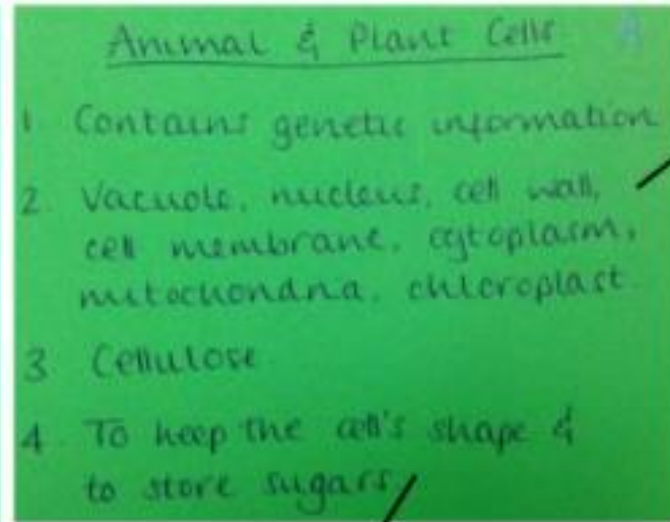 Animal & Plant Cells A
1 Contains genetic information
2. Vacuole, nucleus, cell wall,
cell membrane, cytoplasm,
mitochondria, chloroplast.
3 Cellulose
4. To keep the cell's shape &
to store sugars